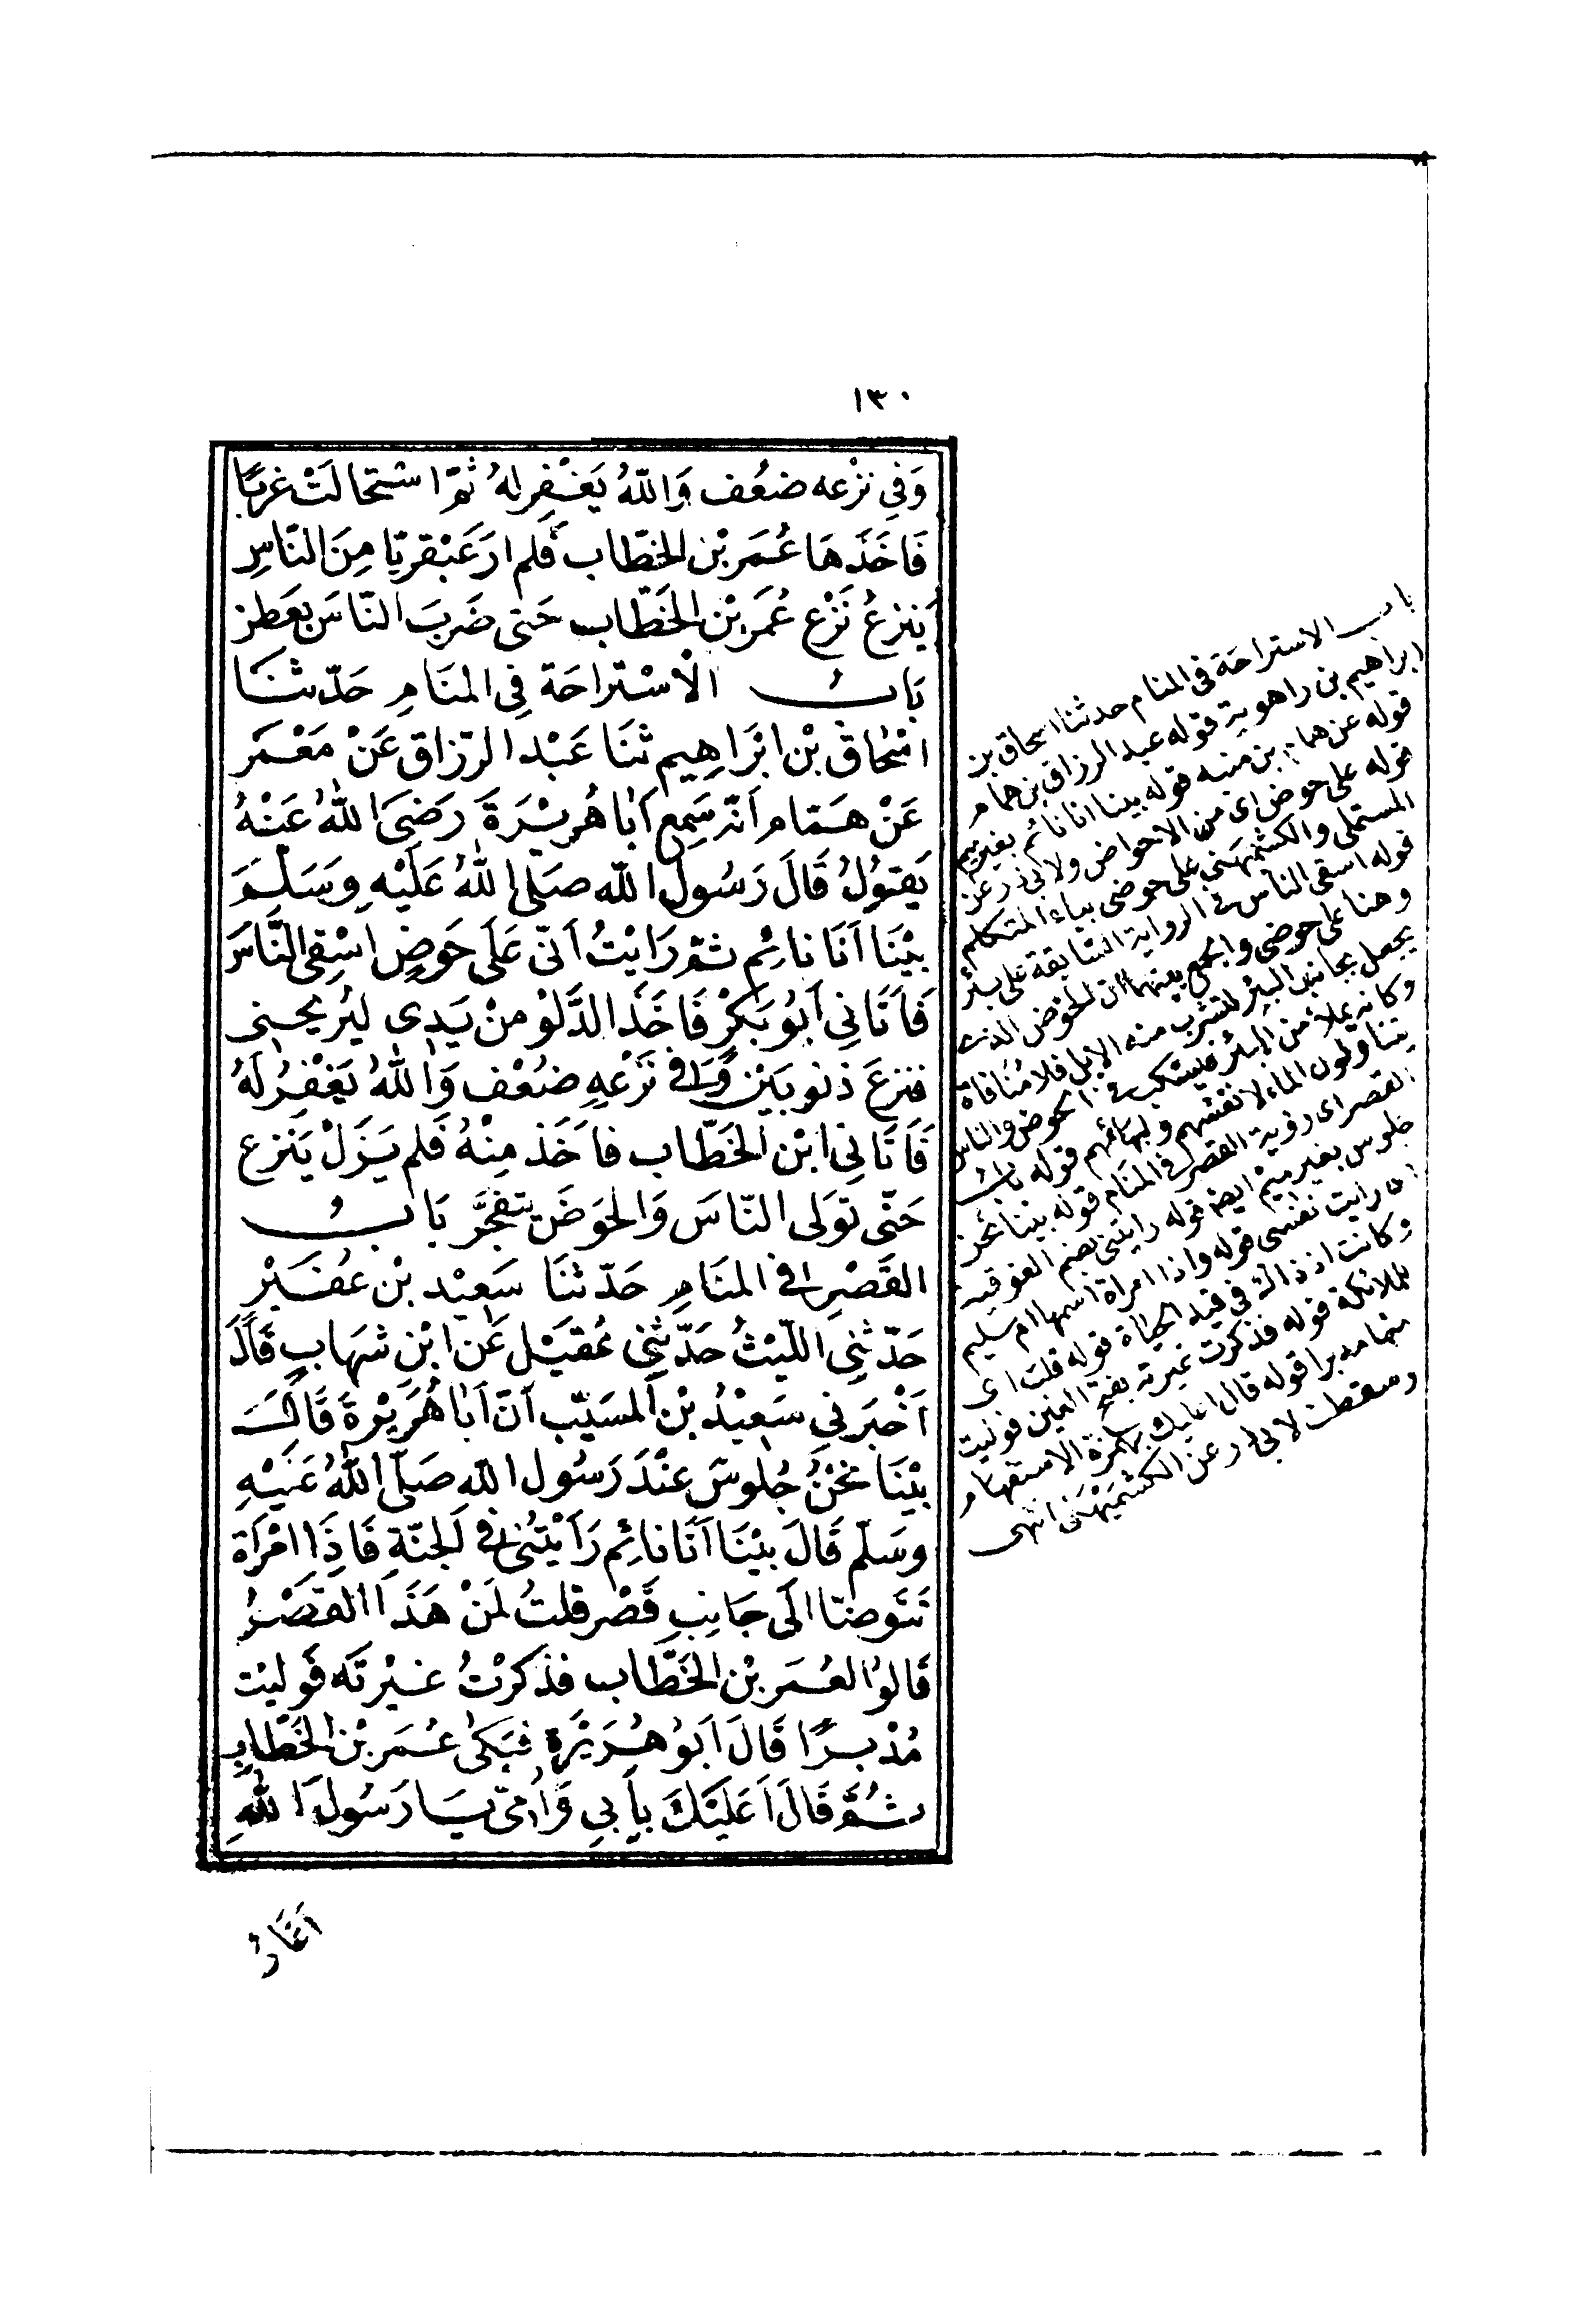 ١٣٠
وَفِي نَزْعه ضعُف وَاللهُ يَغْفِر لهُ ثمّ استحالَتْ غربًا
فَاخَذَهَا عُمَر بْن الخطّاب فَلم ارَ عَبْقريّا مِنَ النّاسِ
يَنزعُ نَزْع عُمَر بْن الخَطّاب حَتى ضَربَ النّاسَ بعَطن
بَابُ الْاسْتراحَة فِي المنَامِ حَدّثنَا
اسْحاقُ بْن ابْرَاهِيم ثنَا عَبْد الرّزاق عَنْ مَعْمَر
عَنْ هَمّام اَنّه سَمِع اَبَا هُريْرَةَ رَضِيَ اللهُ عَنْهُ
يَقوُلُ قَالَ رَسُول الله صَلى اللهُ عَلَيْهِ وَسَلمَ
بيْنَا اَنَا نائِم ثمّ رَايْتُ اَنّي عَلَى حَوضٍ اسْقِي النَّاسَ
فَاَتَانِي اَبُو بَكْرٍ فَاخَذَ الدَّلوْ مِنْ يَدِى ليُريحَني
فنزعَ ذنوبَيْن وَفي نَزْعِهِ ضعُف وَاللهُ يَغْفِرُ لَهُ
فَاَتَانِي ابْن الخَطّاب فاَخَذ مِنْهُ فَلم يَزَلْ يَنزع
حَتّى توَلى النّاسَ وَالحَوضَ يتفجَّر بَابُ
القَصْرِ في المنَامِ حَدّثنَا سَعِيْد بْن عُفَيْر
حَدّثنِي اللّيْثُ حَدّثنِي عُقَيْل عَن ابْنِ شهَابٍ قَالَ
اَخْبَرَنِي سَعِيْدُ بْن المسَيّب اَنّ اَبَا هُرَيْرةَ قَالَ
بيْنَا نحْنُ جُلوسٌ عِنْدَ رَسُول اللهِ صَلّى اللهُ عَليْهِ
وسَلّم قَالَ بيْنَا اَنَا نائِم رَاَيْتُني في الجنّةِ فَاِذَا امْرَاَة
تَتَوضّا الَى جَانِبِ قَصْر قلتُ لمَنْ هَذَا القصْرُ
قَالوُا لعُمَر بْن الخَطّاب فذكرْتُ غيْرتَه فَوليْت
مُدْبرًا قَالَ اَبوُ هُرَيْرَة فبَكَى عُمَر بْن الخَطّابِ
ثُمَّ قَالَ اَعَليْكَ بِاَبي وَاُمّي يَا رَسُولَ اللهِ
اَغَارُ
باب الاستراحة في المنام حدثنا اسحاق بن
ابراهيم بن راهوية قوله عبد الرزاق بن همام
قوله عن همام بن منبه قوله بينا انا نائم بغير ميم
قوله على حوض اى من الاحواض ولابي ذر عن
المستملي والكشميهني على حوضي بياء المتكلم
قوله اسقي الناس في الرواية السّابقة على بئر
وهنا على حوضي والجمع بينهما ان الحوض الذى
يجعل بجانب البئر لتشرب منه الابل فلا مُنافاة
وكانه يملأ من البئر فيسكب في الحوض والناس
يتناولون الماء لانفسهم ولبهائمهم قوله باب
القصر اى رؤية القصر في المنام قوله بينا نحن
جلوس بغير ميم ايضا قوله رايتني بضم الفوقية
اى رايت نفسي قوله واذا امراة اسمها ام سليم
وكانت اذ ذاك في قيد الحياة قوله قلت اى
للملائكة قوله فذكرت غيرته بفتح الغين فوليت
منها مدبرا قوله قال اعليك بهمزة الاستفهام
وسقطت لابي ذر عن الكشميهني انتهى